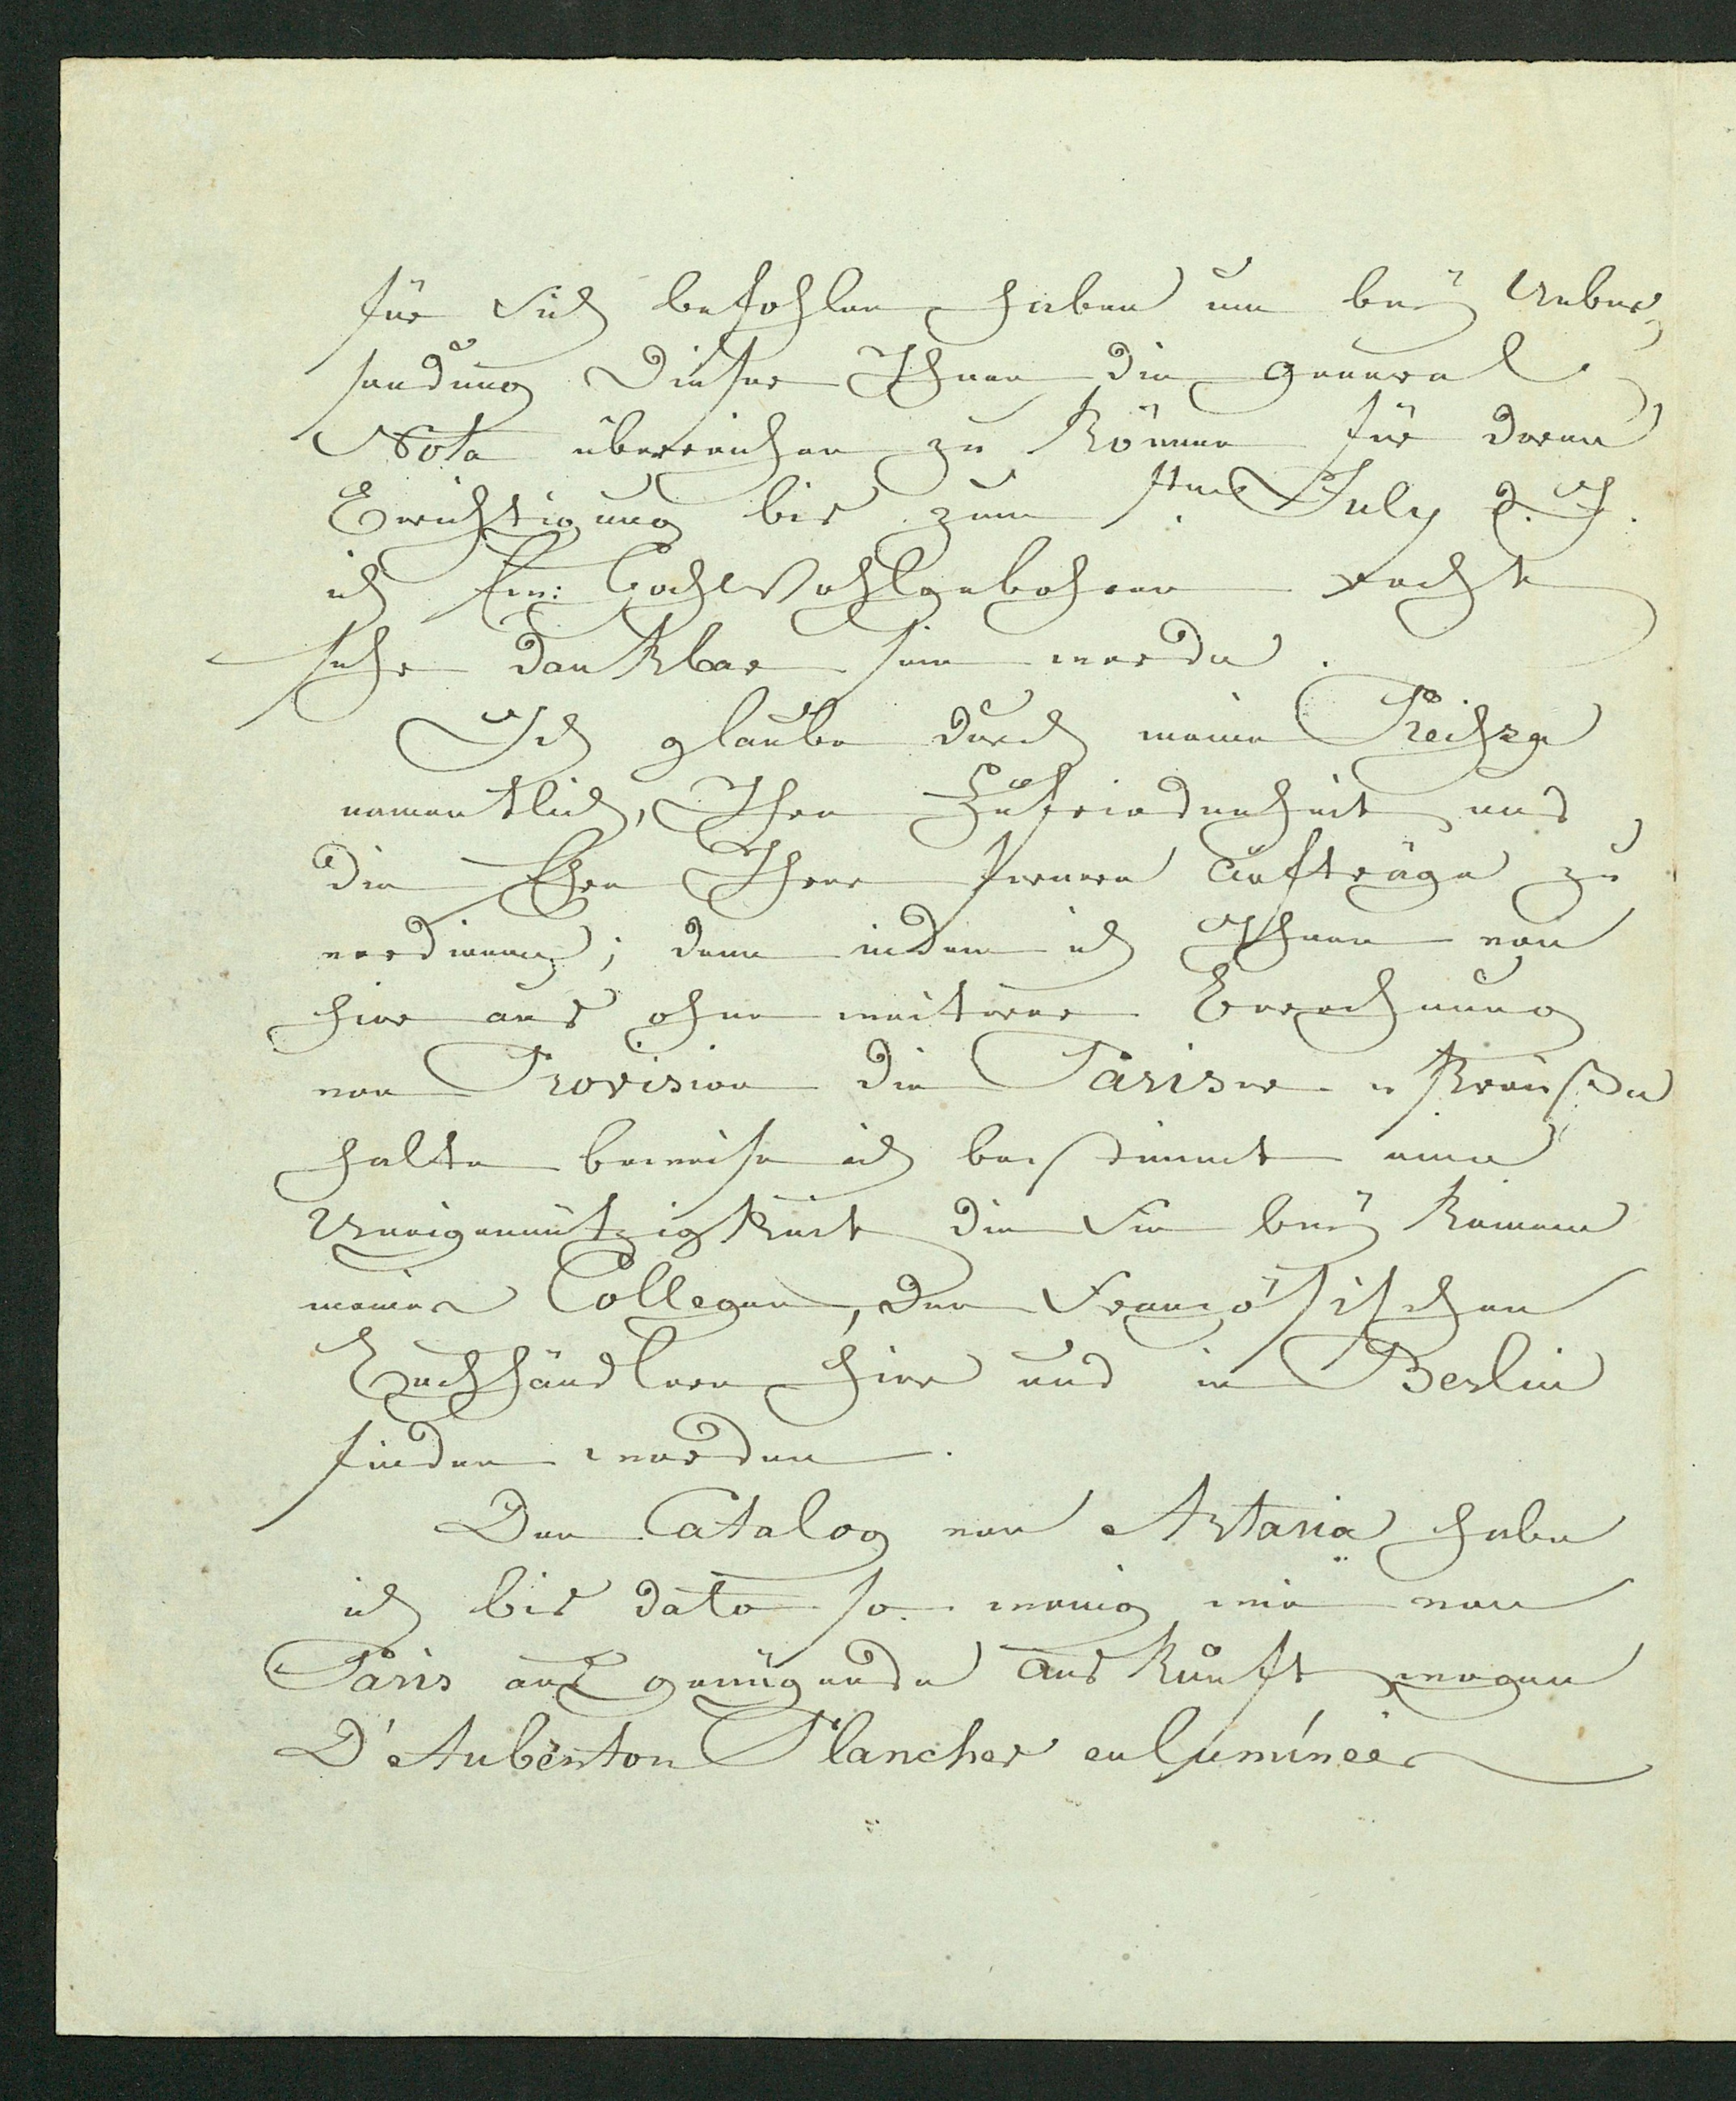 für Sich befohlen haben um beÿ Ueber¬
sendung Dieser Ihnen die general
Nota überreichen zu können für deren
Berichtigung bis zum 1sten July d. J.
ich Ew: HochWohlgebohren recht
sehr dankbar sein werde.
Ich glaube durch meine Preihse
namentlich, Ihre Zufriedenheit und
die Ehre Ihrer ferneren Aufträge zu
verdienen; denn indem ich Ihnen von
hier aus ohne weiterer Berechnung
von Provision die Pariser Preiße
halte beweise ich bestimmt eine
Uneigennützigkeit die Sie beÿ keinem
meiner Collegen, den Französischen
Buchhändlern hier und in Berlin
finden werden.
Den Catalog von Artaria habe
ich bis dato so wenig wie von
Paris aus genügende Auskunft wegen
D'Aubenton Planches enluminées